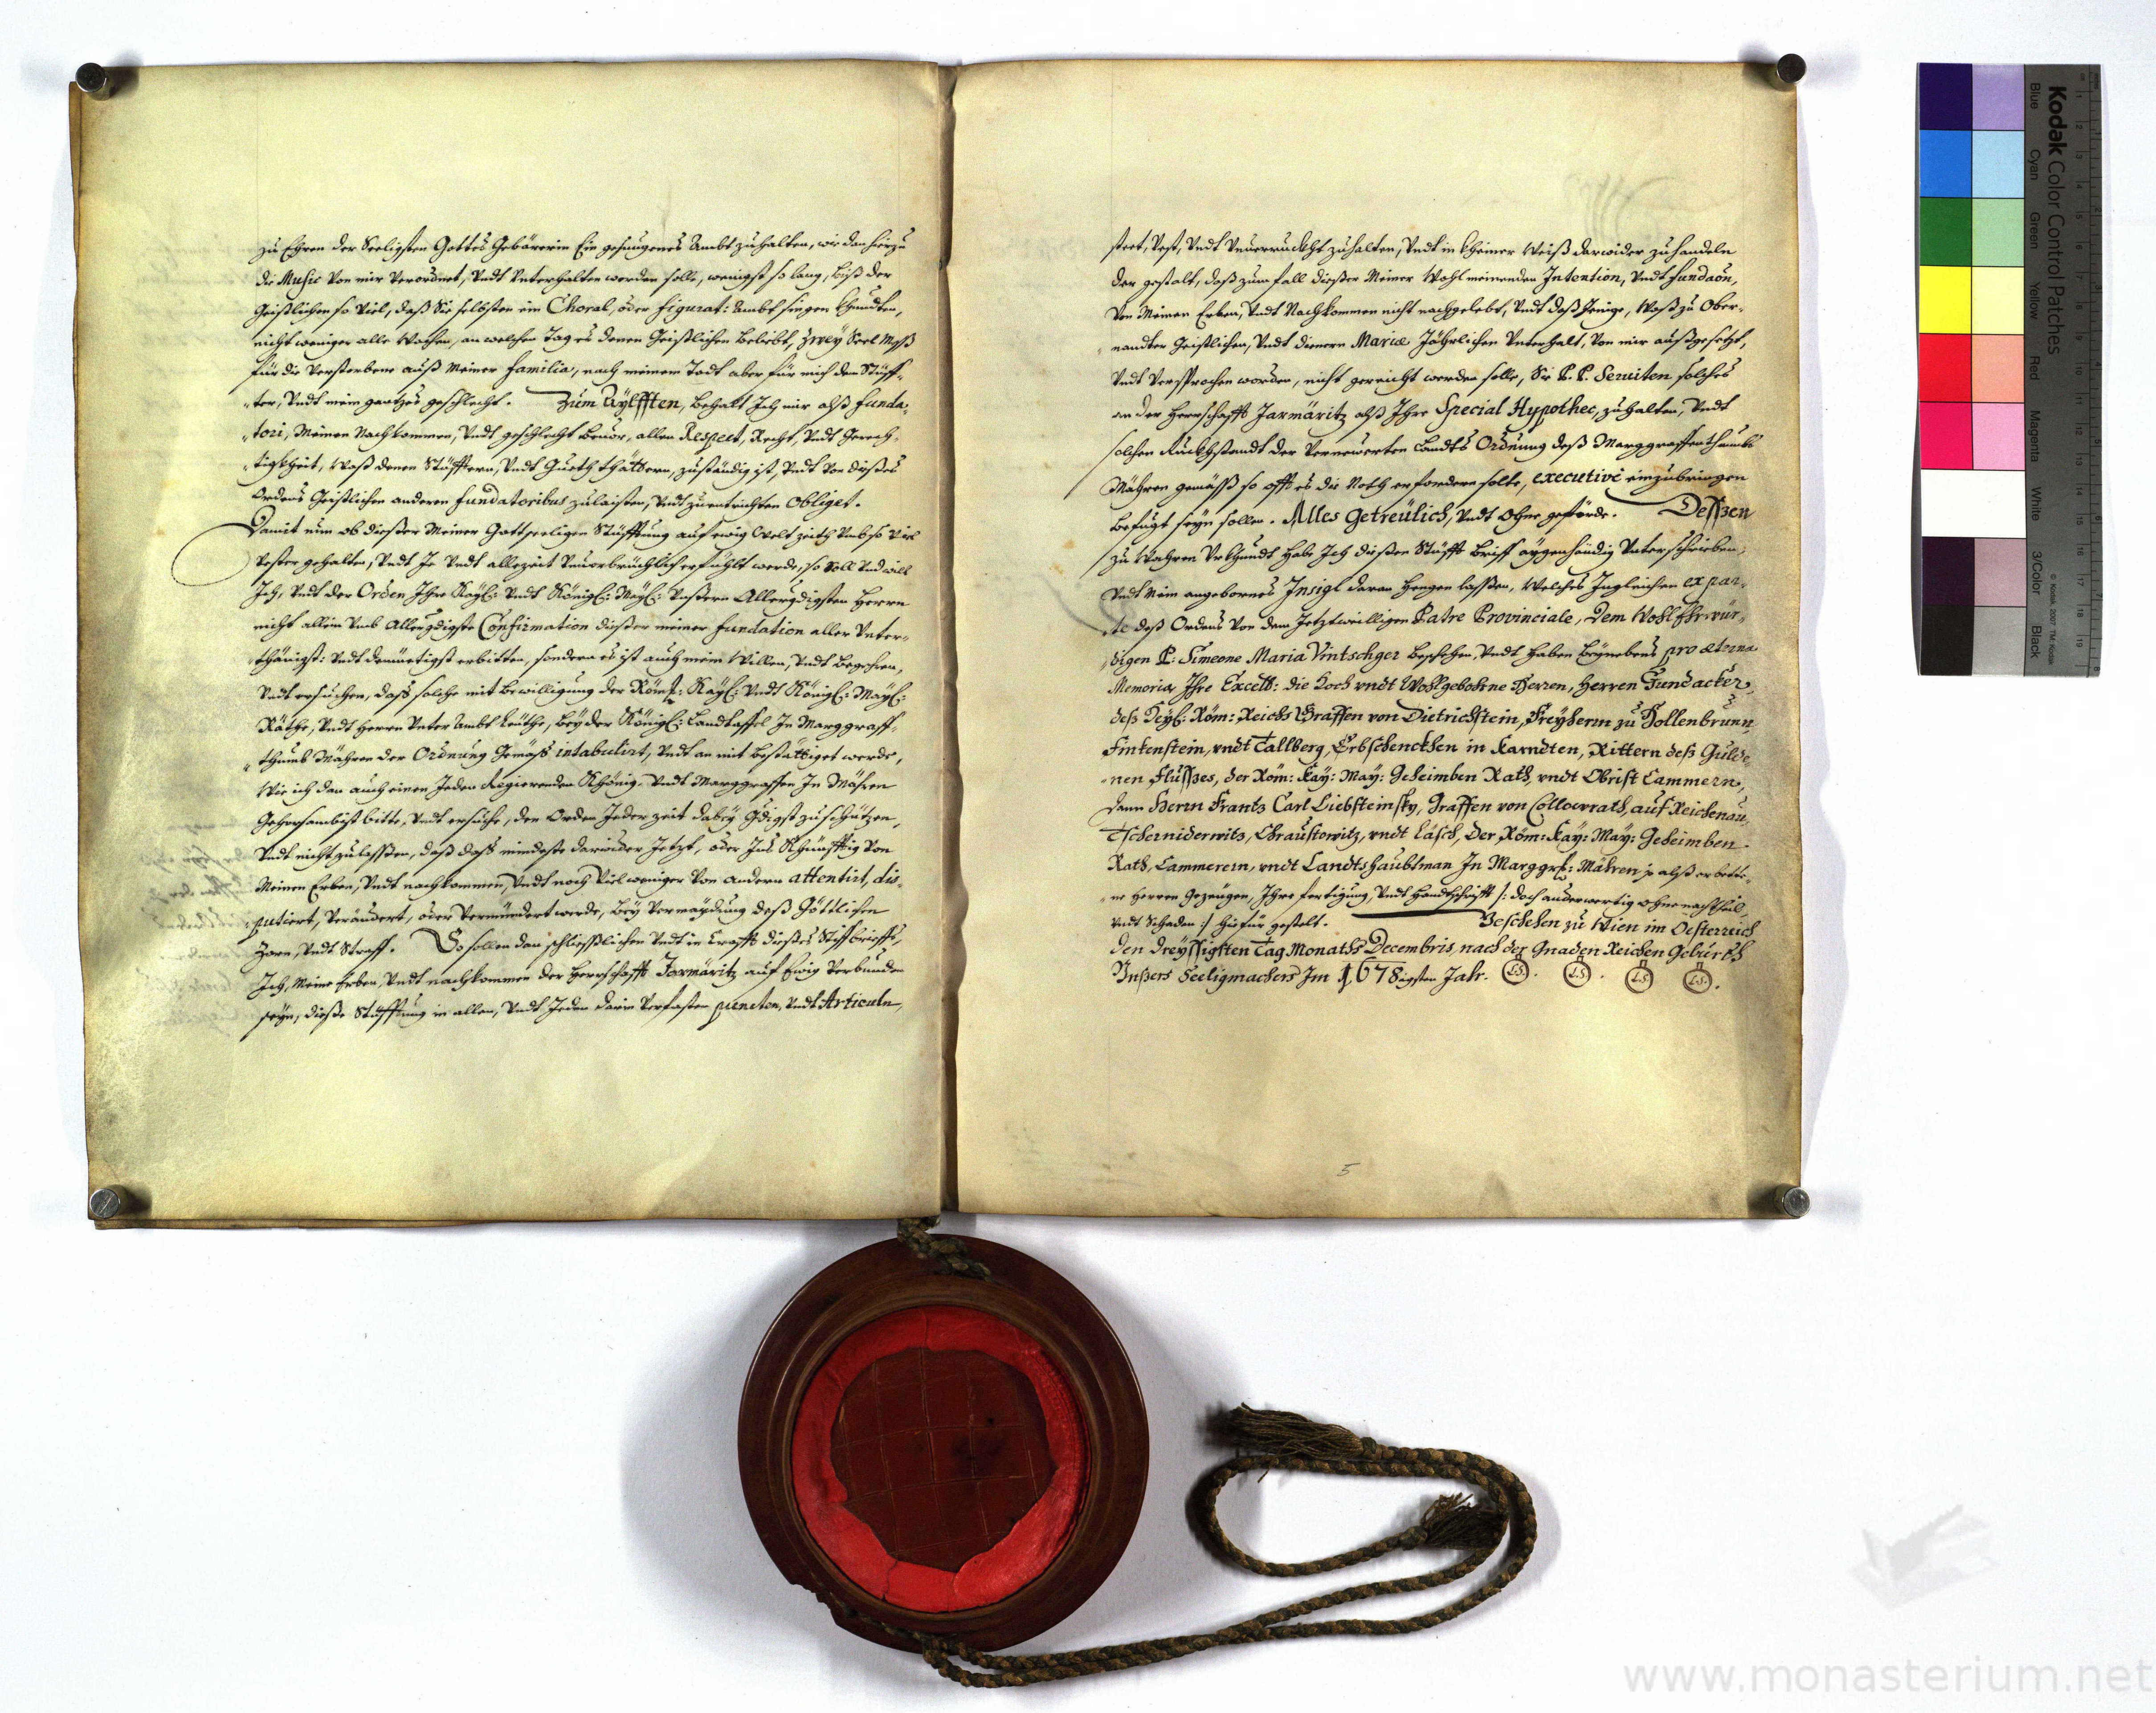 zu Ehren der Seeligsten Gottes Gebärerin Ein gesungenes Ambt zuhalten, wie dan hierzu
die Music von mir verordnet, vndt vnterhalten werden solle, wenigst so lang, biß der
Geistlichen so viel, daß Sie selbsten ein Choral, oder figurat: Ambt singen khündten,
nicht weniger alle Wochen, an welchen Tag es denen Geistlichen beliebt, zwey Seel Meß
für die verstorbene auß meiner familia, nach meinem Todt aber für mich den Stüff-
-ter, vndt mein gantzes geschlecht. Zum Aÿlfften, behalt Ich mir alß funda-
-tori, meinen Nachkommen, vndt geschlecht beuor, allen Respect, Recht, vndt Gerech-
-tigkheit, waß denen Stüfftern, vndt Gueth thättern, zuständig ist, vndt von dießes
Ordens Geistlichen anderen fundatoribus zulaisten, vndt zu entrichten obliget.
Damit nun ob dießer meiner Gottseeligen Stüfftung auf ewig Welt zeith vmb so viel
vester gehalten, vndt Je vndt allezeit vnuerbrüchlich erfühlt werde, so soll vnd will
Ich, vndt der Orden Ihre Kaÿl: vndt Königl: Maÿl: vnßern Allergdigsten Herrn
nicht allein vmb Allergdigste Confirmation dießer meiner fundation aller vnter-
-thänigst: vndt demüetigst erbitten, sondern es ist auch mein Willen, vndt begehren,
vndt ersuchen, daß solche mit bewilligung der Röm: Kaÿl: vndt Königl: Maÿl:
Räthe, vndt Herrn vnter Ambt Leüthe, beÿ der Königl: Landtaffel In Marggraff-
-thumb Mähren der Ordnung Gemäß intabulirt, vndt an mit bestättiget werde,
Wie ich dan auch einen Jeden Regierenden Khönig, vndt Marggraffen In Mähren
Gehorsambist bitte, vndt ersuche, den Orden Jeder zeit dabeÿ Gdigst zu schützen,
vndt nicht zulaßßen, daß daß mindeste darwider Jetzt, oder Ins Khünfftig von
Meinen Erben, vndt nachkommen, vndt noch viel weniger von andern attentirt, dis-
-putiert, verändert, oder vermündert werde, beÿ vermaÿdung deß Göttlichen
Zorn, vndt Straff. So sollen dan schließlichen vndt in Crafft dießes Stüffbrieffs,
Ich, Meine Erben, vndt nachkommen der Herrschafft Jarmäritz auf Ewig verbunden
seÿn, dieße Stüfftung in allen, vndt Jeden darin verfasten puncten, vndt Articuln,
steet, vest, vndt vnuerruckht zuhalten, vndt in kheiner Weiß darwider zuhandeln
der gestalt, daß zum fall dießer Meiner Wohl meinenden Intention, vndt fundaōn,
von Meinen Erben, vndt Nachkommen nicht nachgelebt, vndt daß Jenige, waß zu Ober-
-nandter Geistlichen, vndt dienern Mariæ Jährlichen vnterhalt, von mir außgesetzt,
vndt versprochen worden, nicht gereicht werden solle, Sie P. P. Seruiten solches
an der Herrschafft Jarmäritz alß Ihre Special Hypothec, zuhalten, vndt
solchen Ruckhstandt der vernewerten Landts Ordnung deß Marggraffenthumbs
Mähren gemäß so offt es die Noth erfordern solte, executivè einzubringen
befugt seÿn sollen. Alles Getreülich, vndt ohne gefärde. Deßßen
zu Wahren Vrkhundt habe Ich dießen Stüfft Brieff aÿgenhändig vnterschrieben,
vndt Mein angebornes Insigl daran hengen laßßen, welches Ingleichen ex par-
-te deß Ordens von dem Jetztweilligen Patre Provinciale, Dem Wohl Ehrwür-
-digen P: Simeone Maria Vintschger beschehen, vndt haben beÿnebens pro æterna
Memoria Ihre Excell: die Hoch vndt Wohlgebohrne Herren, Herren Gundacker,
deß Heÿl: Röm: Reichs Graffen von Dietrichstein, Freÿherrn zu Hollenbrunn,
Finkenstein, vndt Tallberg, Erbschenckhen in Karndten, Rittern deß Gulde-
-nen Flußßes, der Röm: Kaÿ: Maÿ: Geheimben Rath, vndt Obrist Cammern,
dann Herrn Frantz Carl Liebsteinsky, Graffen von Collowrath, auf Reichenau,
Tscherniderwitz, Chraustowitz, vndt Läsch, der Röm: Kaÿ: Maÿ: Geheimben
Rath, Cammerern, vndt Landtshaubtman In Marggrf: Mähren alß erbette-
-ne Herren Gezeügen, Ihre fertigung, vndt Handtschrifft /: doch anderwertig ohne nachtheil,
vndt Schaden :/ hiefür gestelt. Beschehen zu Wien im Oesterreich
den dreÿssigsten Tag Monaths Decembris, nach der Gnaden Reichen Geburth
Vnßers Seeligmachers Im 1678igsten Jahr. L.S. L.S. L.S. L.S.
5
Kodak Color Control Patches
Blue Cyan Green Yellow Red Magenta White 3/Color Black
© Kodak, 2007 TM: Kodak
www.monasterium.net